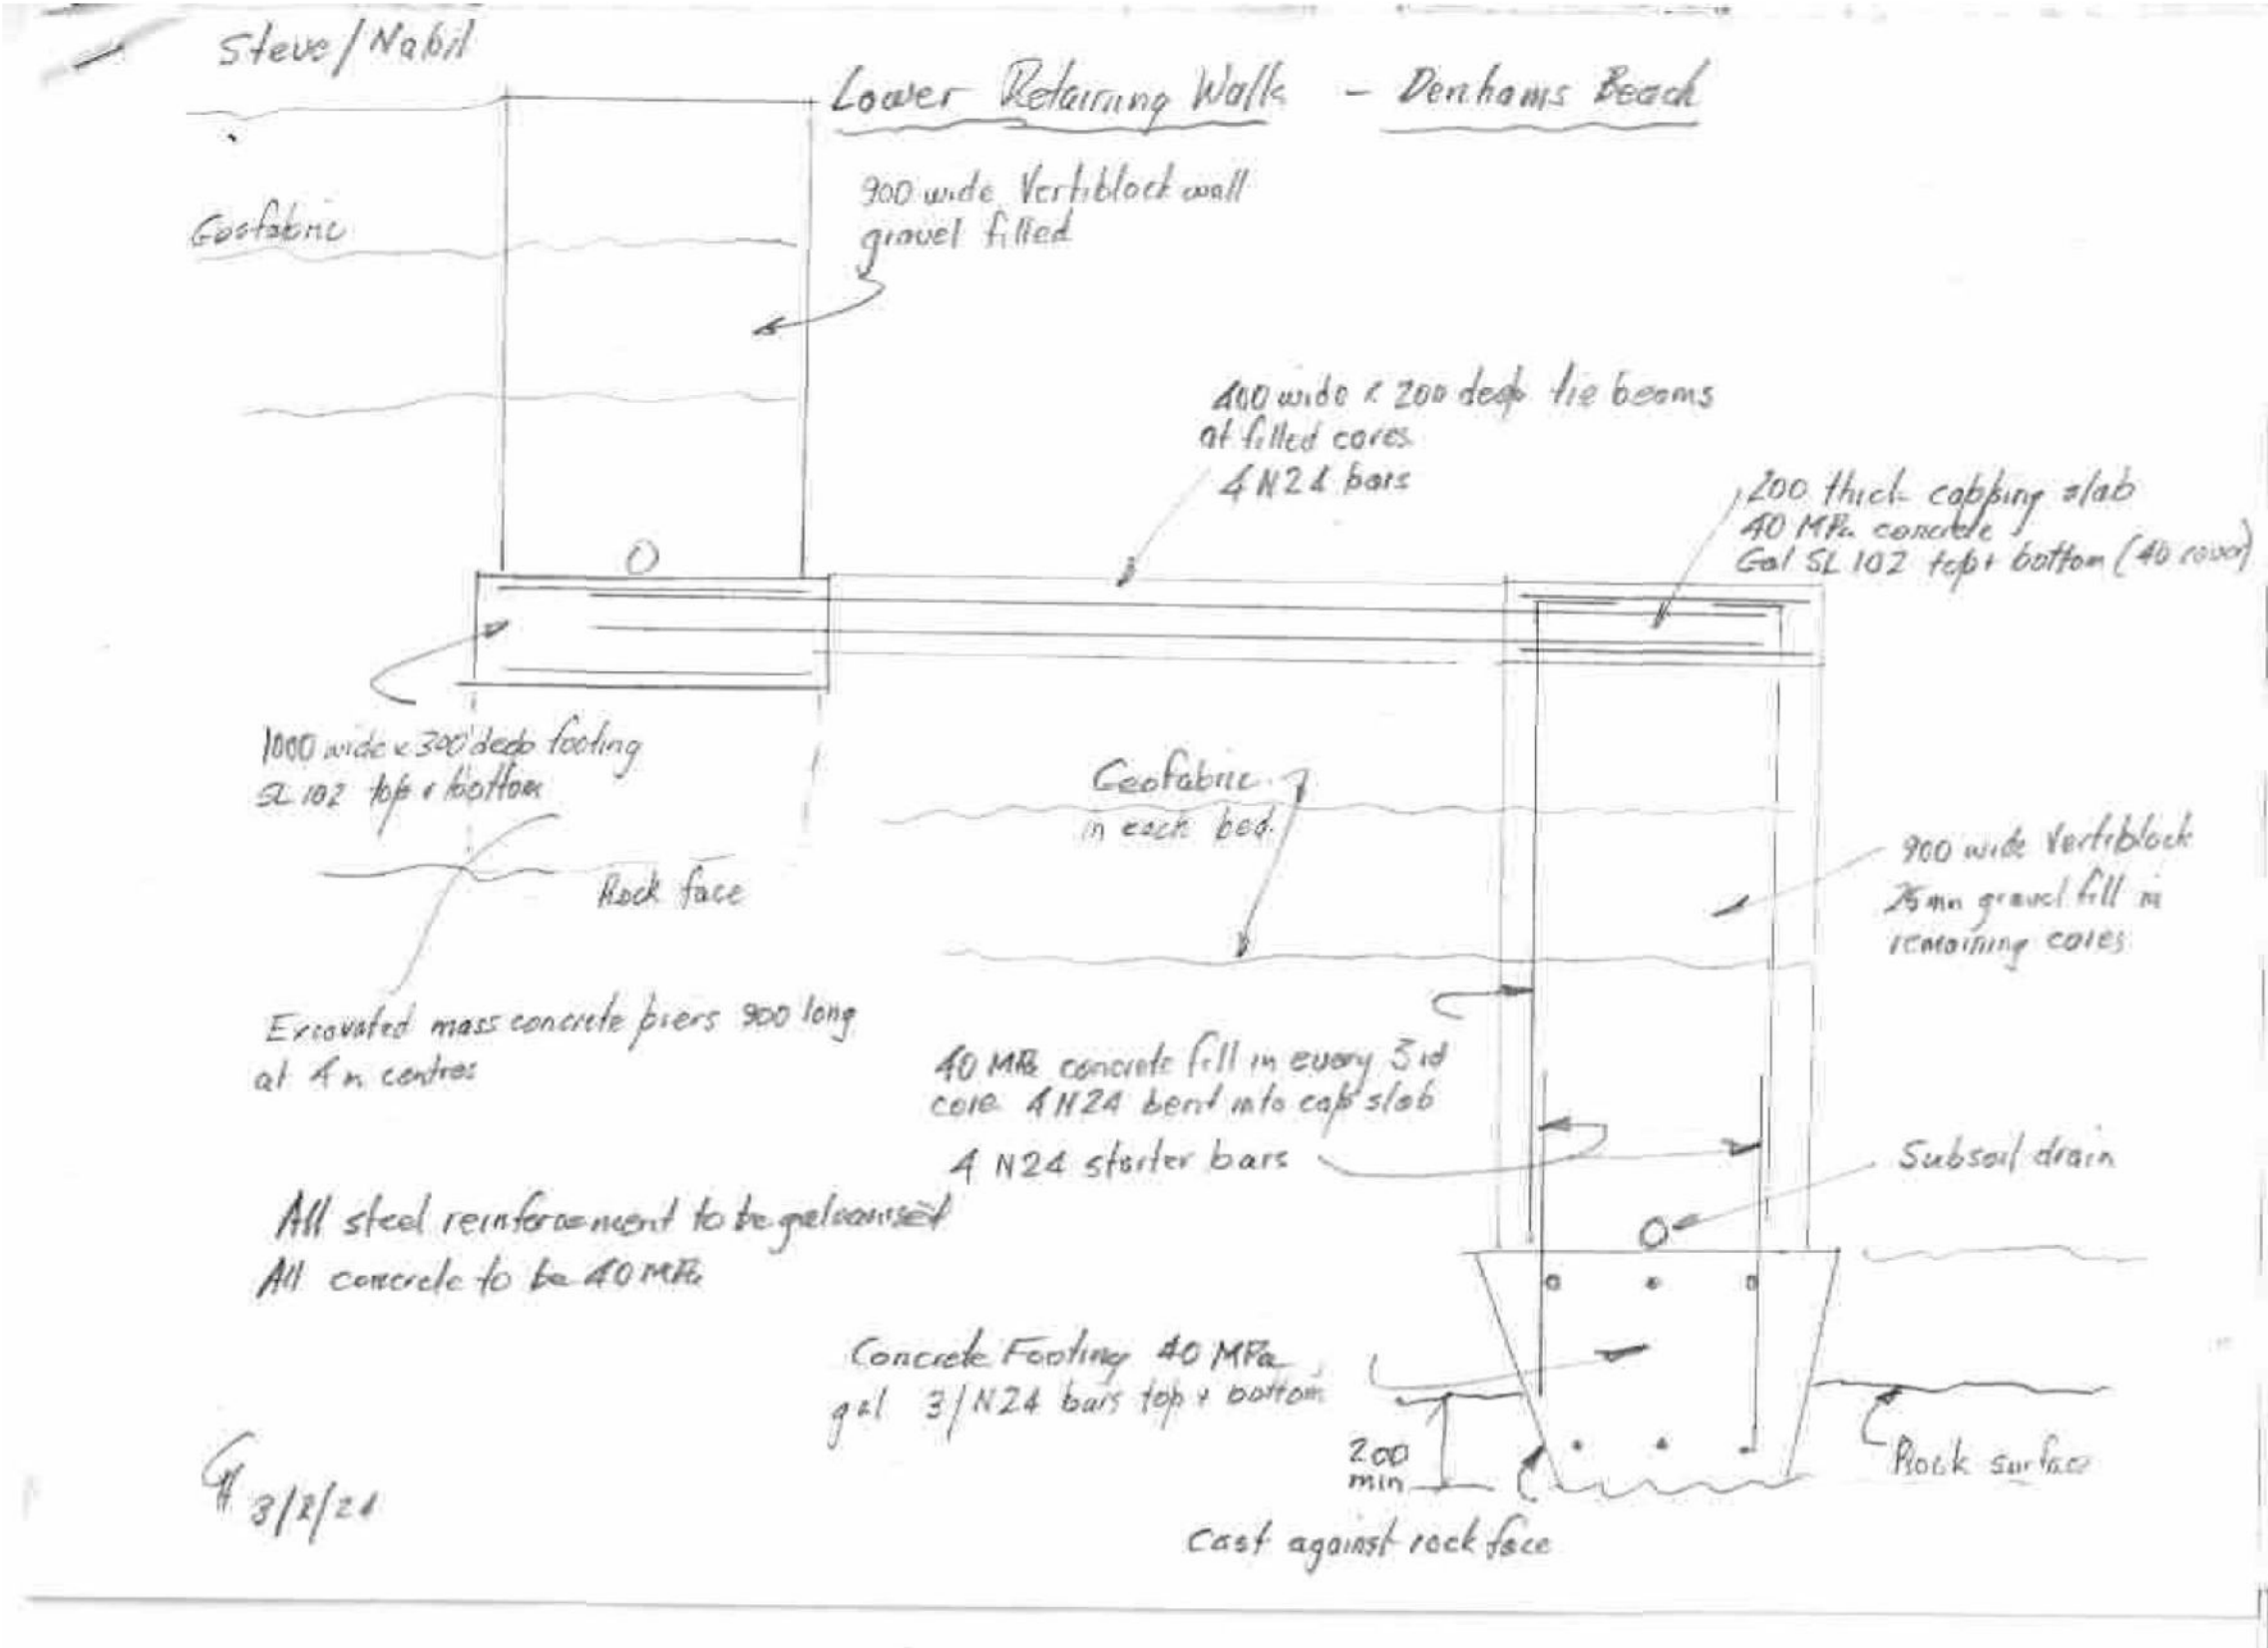 Steve/Nabil
Lower Retaining Walls - Denhams Beach
900 wide Vertiblock wall
gravel filled
Geofabric
400 wide x 200 deep tie beams
at filled cores
4 N24 bars
200 thick capping slab
40 MPa concrete
Gal SL 102 top + bottom (40 cover)
1000 wide x 300 deep footing
SL 102 top + bottom
Geofabric
in each bed
Rock face
900 wide Vertiblock
25mm gravel fill in
remaining cores
Excavated mass concrete piers 900 long
at 4m centres
40 MPa concrete fill in every 3rd
core 4 N24 bent into cap slab
4 N24 starter bars
Subsoil drain
All steel reinforcement to be galvanised
All concrete to be 40 MPa
Concrete Footing 40 MPa
gal 3/N24 bars top + bottom
200
min
Rock surface
Cast against rock face